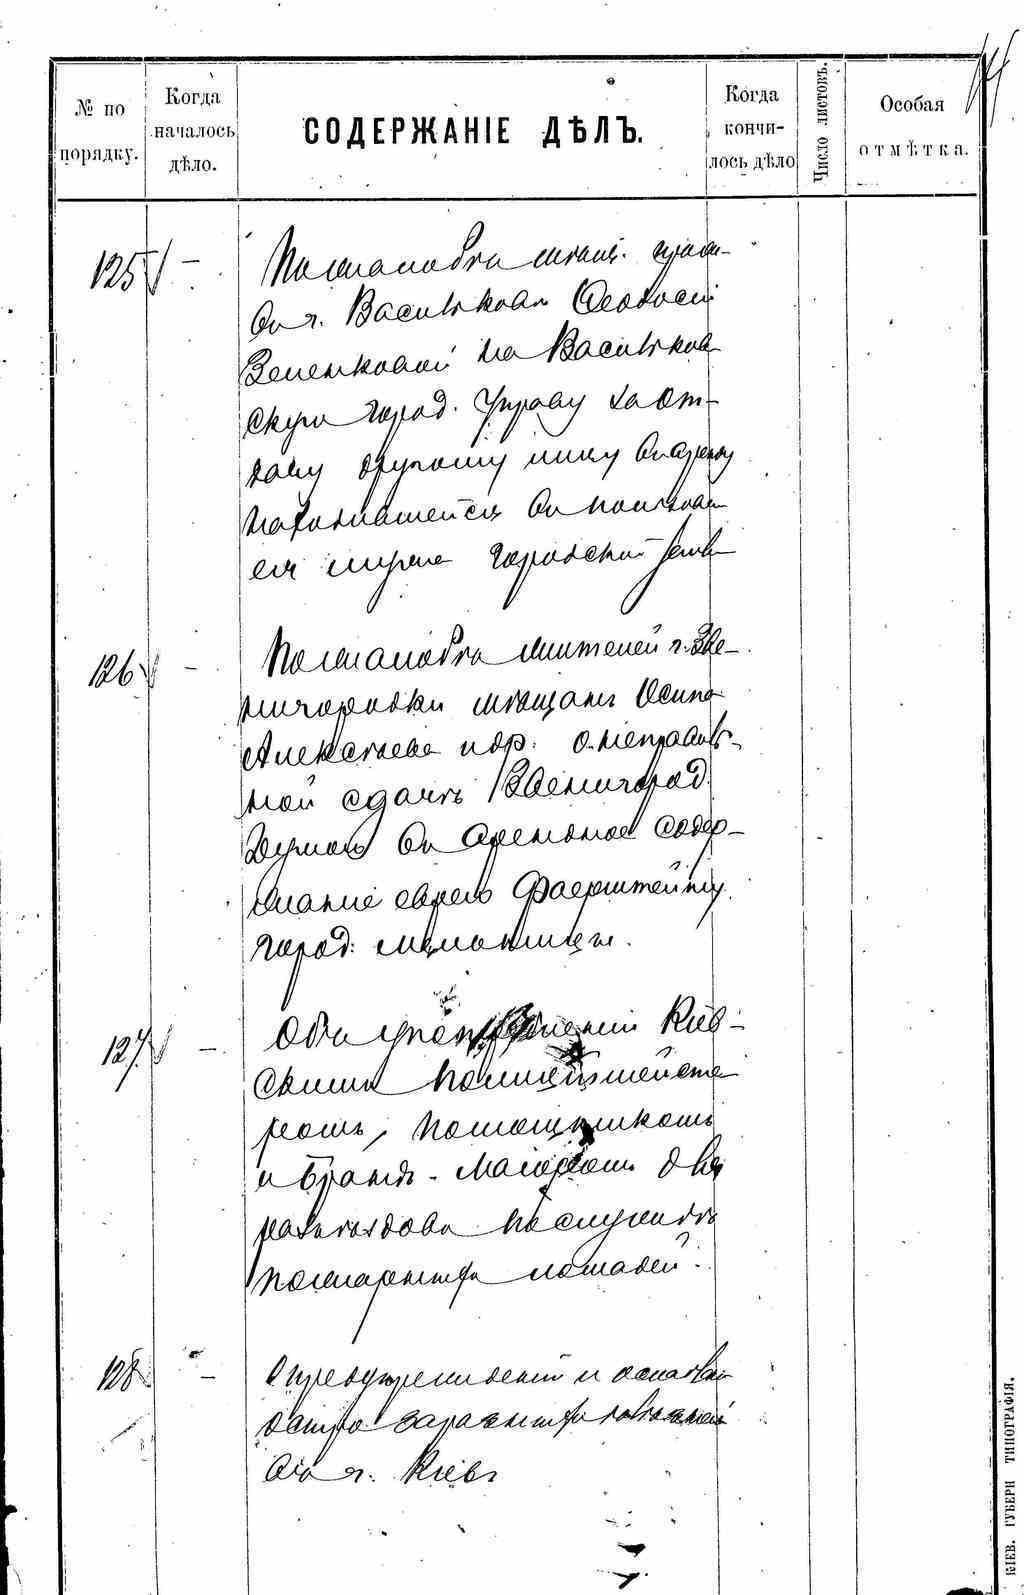 № по порядку.
Когда началось дѣло.
СОДЕРЖАНІЕ ДѢЛЪ.
Когда кончилось дѣло
Число листовъ.
Особая отмѣтка.
125
По жалобѣ мѣщ.
въ г. Васильковѣ Ѳеодосіи
Зеленковой на Васильков
скую город. Управу за от-
дачу другому лицу въ аренду
находившейся въ пользован
ея мужа городской земл
126
По жалобѣ жителей г. Зве-
нигородки мѣщанъ Осипа
Алексѣева и др. о неправиль-
ной сдачѣ Звенигород.
Думою въ арендное содер-
жаніе еврею Фаерштейну
город. мельницы.
127.
Объ употребленіи Кіев-
скимъ Полиціймейсте
ромъ, помощникомъ
и Брантъ-Маіоромъ для
разъѣздовъ по службѣ
пожарныхъ лошадей.
128
О предупрежденіи и
заразныхъ болѣзней
въ г. Кіевѣ
КІЕВ. ГУБЕРН ТИПОГРАФІЯ.